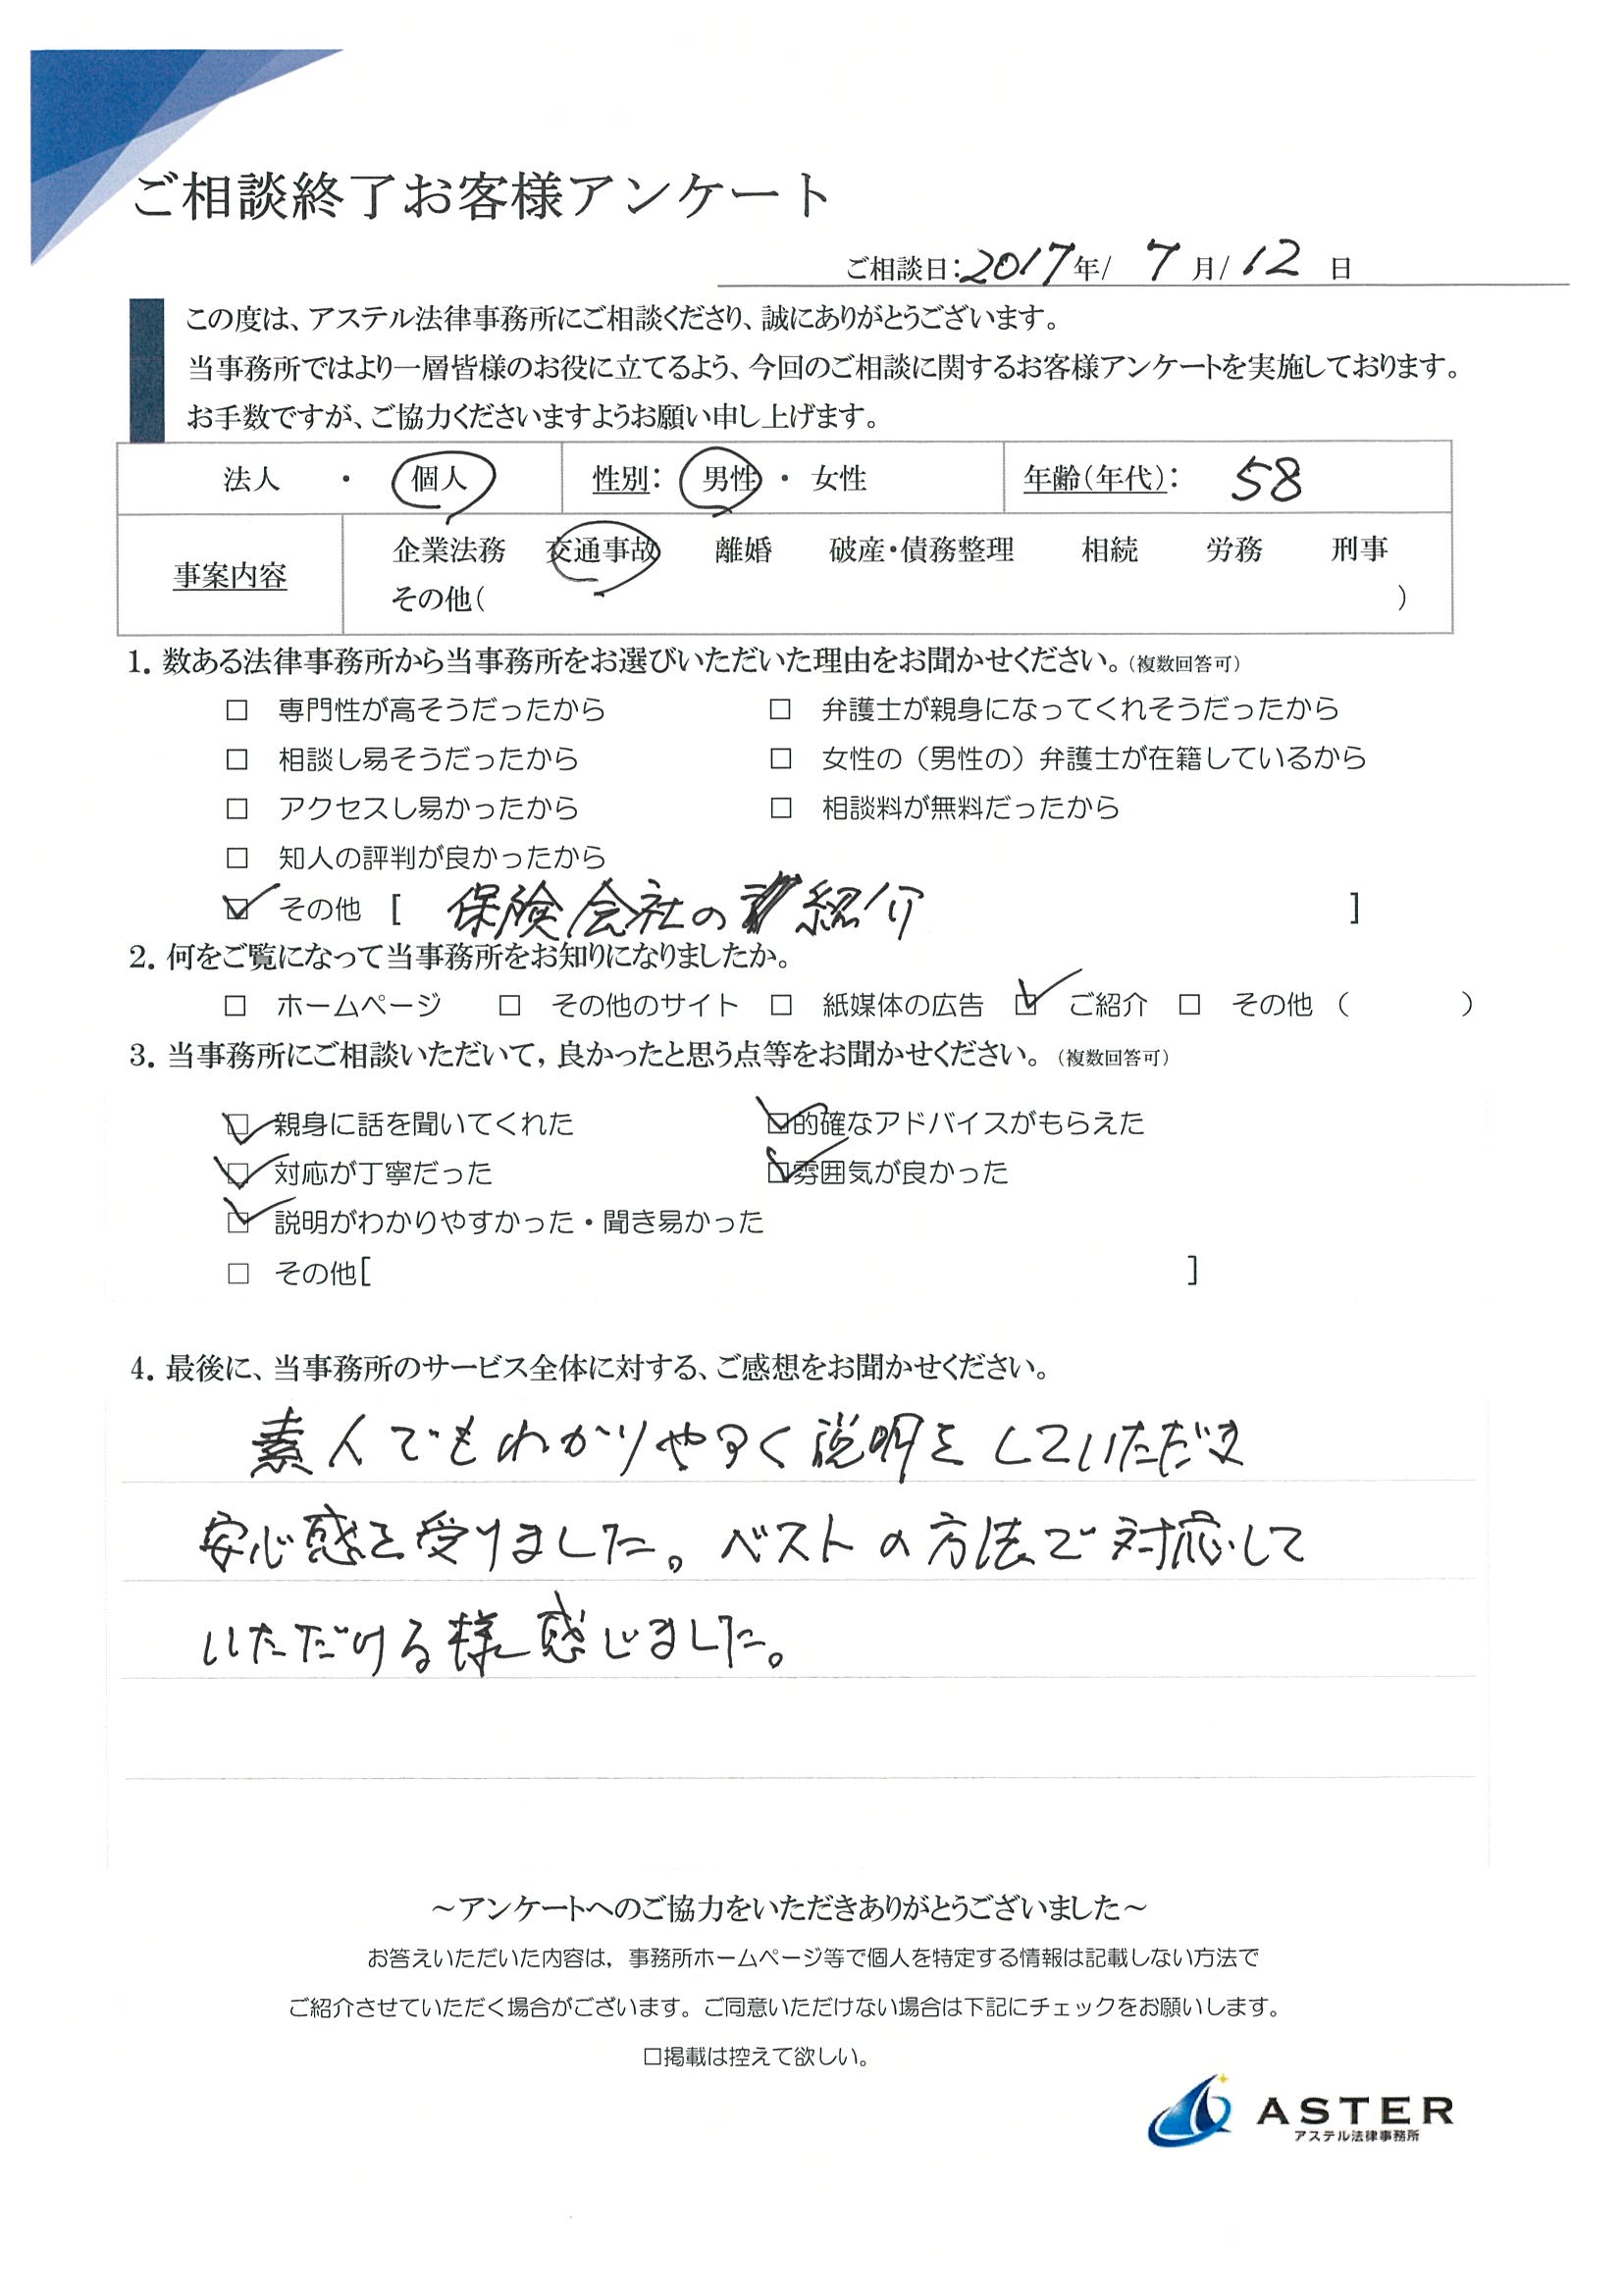 ご相談終了お客様アンケート
ご相談日:2017年/ 7月/12日
この度は、アステル法律事務所にご相談くださり、誠にありがとうございます。
当事務所ではより一層皆様のお役に立てるよう、今回のご相談に関するお客様アンケートを実施しております。
お手数ですが、ご協力くださいますようお願い申し上げます。
法人 ・ 個人 性別: 男性 ・ 女性 年齢(年代): 58
事案内容 企業法務 交通事故 離婚 破産・債務整理 相続 労務 刑事
その他( )
1. 数ある法律事務所から当事務所をお選びいただいた理由をお聞かせください。(複数回答可)
□ 専門性が高そうだったから □ 弁護士が親身になってくれそうだったから
□ 相談し易そうだったから □ 女性の(男性の)弁護士が在籍しているから
□ アクセスし易かったから □ 相談料が無料だったから
□ 知人の評判が良かったから
☑ その他 [ 保険会社の紹介 ]
2. 何をご覧になって当事務所をお知りになりましたか。
□ ホームページ □ その他のサイト □ 紙媒体の広告 ☑ ご紹介 □ その他 ( )
3. 当事務所にご相談いただいて, 良かったと思う点等をお聞かせください。(複数回答可)
☑ 親身に話を聞いてくれた ☑的確なアドバイスがもらえた
☑ 対応が丁寧だった ☑雰囲気が良かった
☑ 説明がわかりやすかった・聞き易かった
□ その他[ ]
4. 最後に、当事務所のサービス全体に対する、ご感想をお聞かせください。
素人でもわかりやすく説明をしていただき
安心感を受けました。ベストの方法で対応して
いただける様感じました。
~アンケートへのご協力をいただきありがとうございました~
お答えいただいた内容は, 事務所ホームページ等で個人を特定する情報は記載しない方法で
ご紹介させていただく場合がございます。ご同意いただけない場合は下記にチェックをお願いします。
□掲載は控えて欲しい。
ASTER
アステル法律事務所